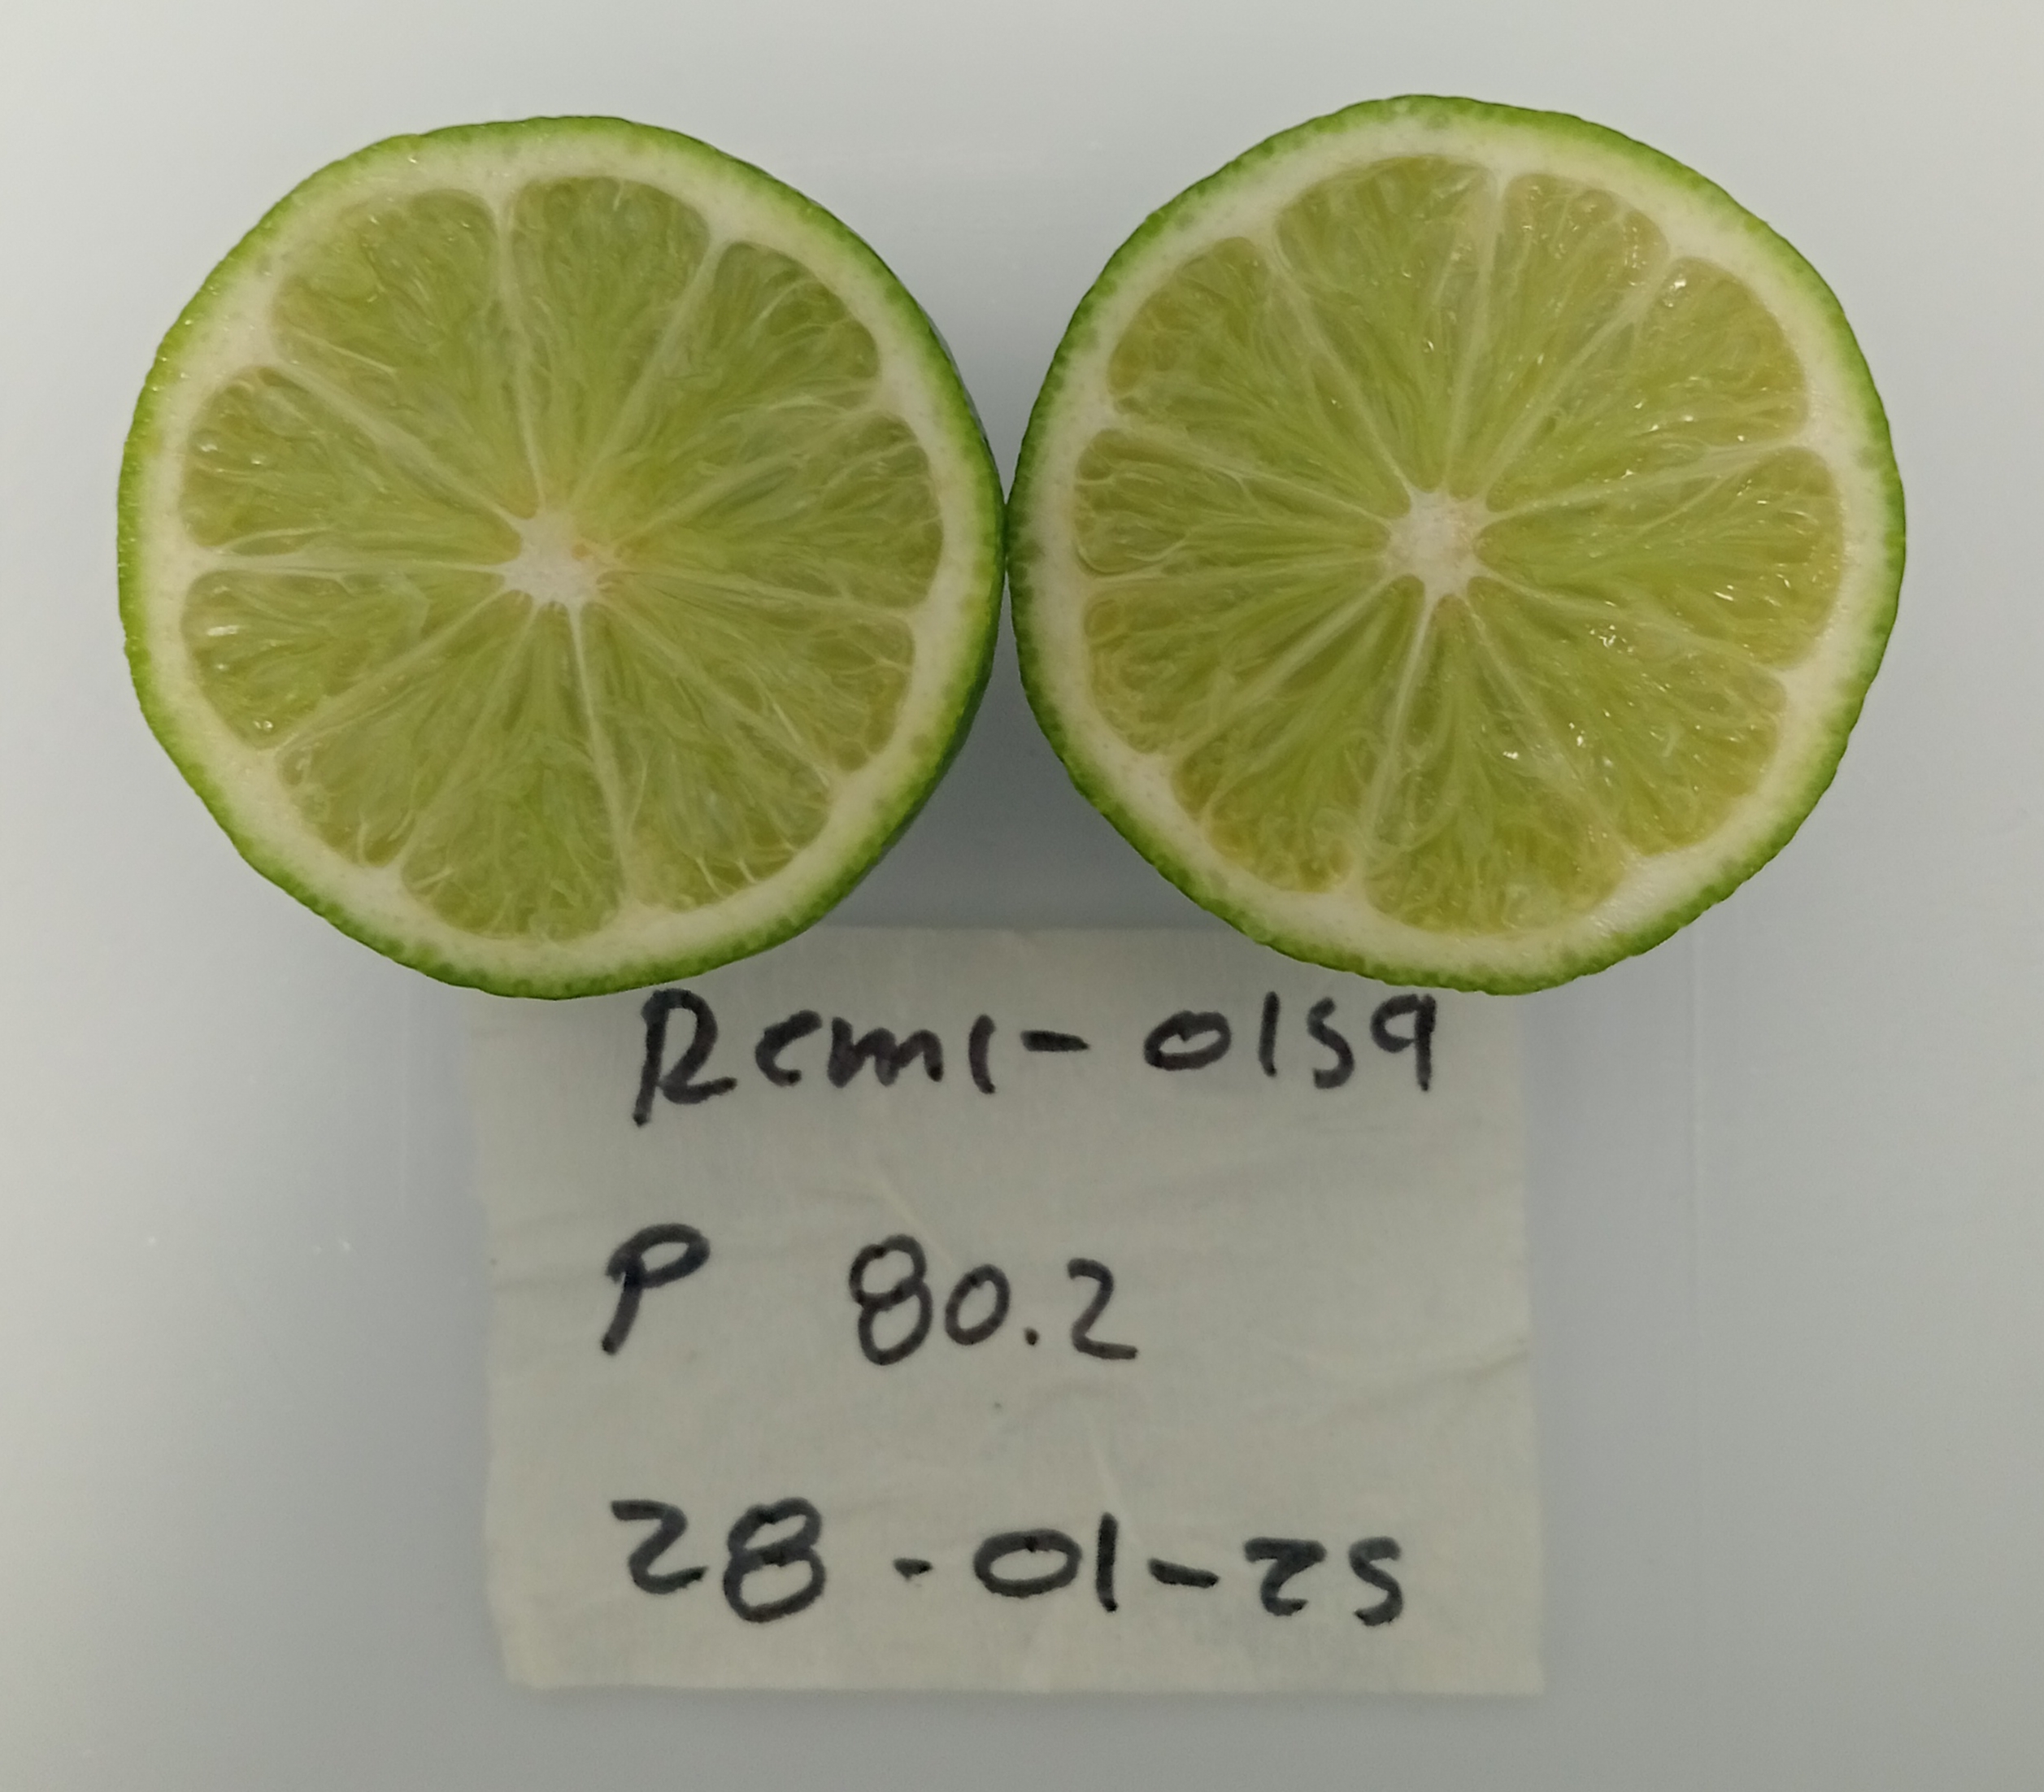 Remi-0159
P 80.2
28-01-25